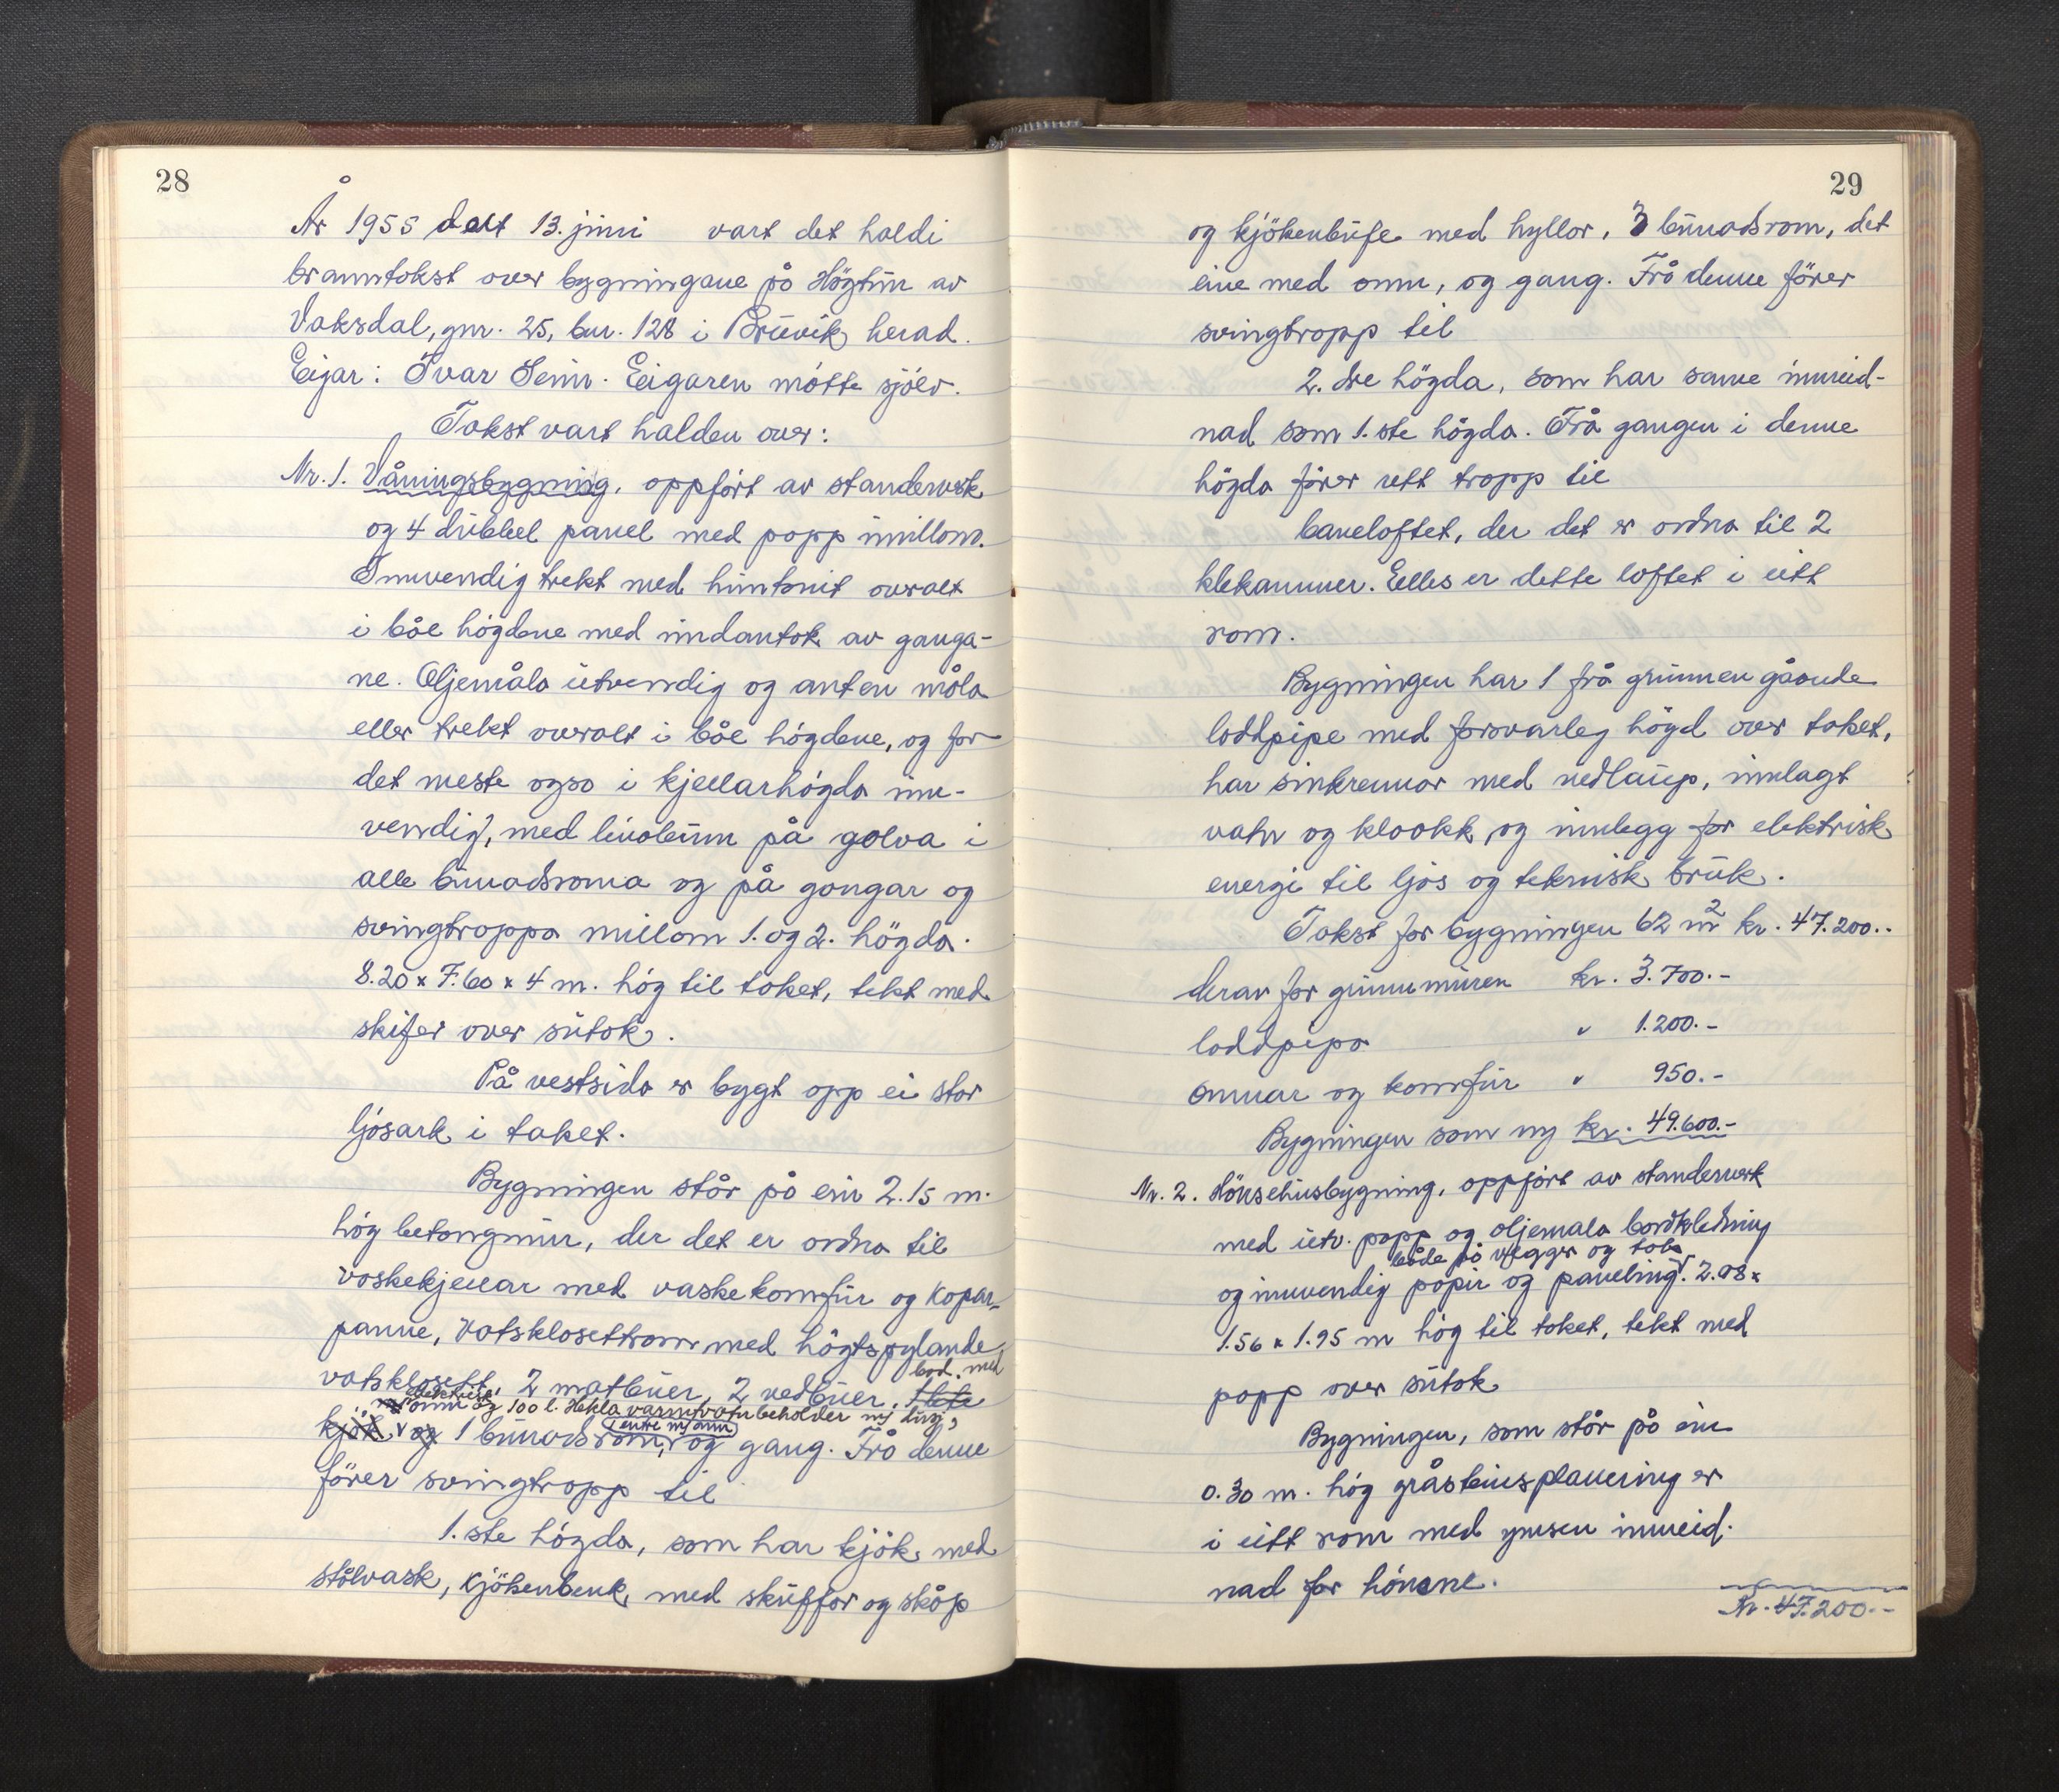 28
År 1955 den 13. juni vart det haldi
branntakst over bygningane på Högtun av
Vaksdal, gnr. 25, bnr. 128 i Bruvik herad.
Eigar: Ivar Seim. Eigaren møtte sjölv.
Takst vart halden over:
Nr. 1. Våningsbygning, oppfört av standerverk
og 4 dubbel panel med papp imillom.
Innvendig trekt med huntonit overalt
i båe högdene med undantak av ganga-
ne. Oljemåla utvendig og anten måla
eller trekt overalt i båe högdene, og for
det meste også i kjellarhögda inn-
vendig, med linoleum på golva i
alle bunadsroma og på gangar og
svingtroppa millom 1. og 2. högda.
8.20 x 7.60 x 4 m. hög til taket, tekt med
skifer over sutak.
På vestsida er bygt opp ei stor
ljosark i taket.
Bygningen står på ein 2.15 m.
hög betongmur, der det er ordna til
vaskekjellar med vaskekomfur og kopar-
panne, vatsklosettrom med högtspylande
vatsklosett, 2 matbuer, 2 vedbuer, bad med
elektrisk omn og 100 l. Hekla varmtvatnbeholder m/ dusj,
kjök og 1 bunadsrom, entre m/omn og gang. Frå denne
förer svingtropp til
1. ste högda, som har kjök med
stålvask, kjökenbenk med skuffor og skåp
29
og kjökenbufe med hyllor, 3 bunadsrom, det
eine med omn, og gang. Frå denne förer
svingtropp til
2. dre högda, som har same innreid-
nad som 1. ste högda. Frå gangen i denne
högda förer rett tropp til
baneloftet, der det er ordna til 2
klekammer. Elles er dette loftet i eitt
rom.
Bygningen har 1 frå grunnen gåande
loddpipe med forsvarleg högd over taket,
har sinkrennor med nedlaup, innlagt
vatn og kloakk, og innlegg for elektrisk
energi til ljos og teknisk bruk.
Takst for bygningen 62 m² kr. 47.200.-
derav for grunnmuren kr. 3.700.-
loddpipa " 1.200.-
omnar og komfur " 950.-
Bygningen som ny kr. 49.600.-
Nr. 2. Hönsehusbygning, oppfört av standerverk
med utv. papp og oljemala bordkledning
både på vegger og tak
og innvendig papir og paneling. 2.98 x
1.56 x 1.95 m hög til taket, tekt med
papp over sutak
Bygningen, som står på ein
0.30 m. hög gråsteinsplanering er
i eitt rom med ymsen innreid-
nad for hönene.
Kr. 47.200.-